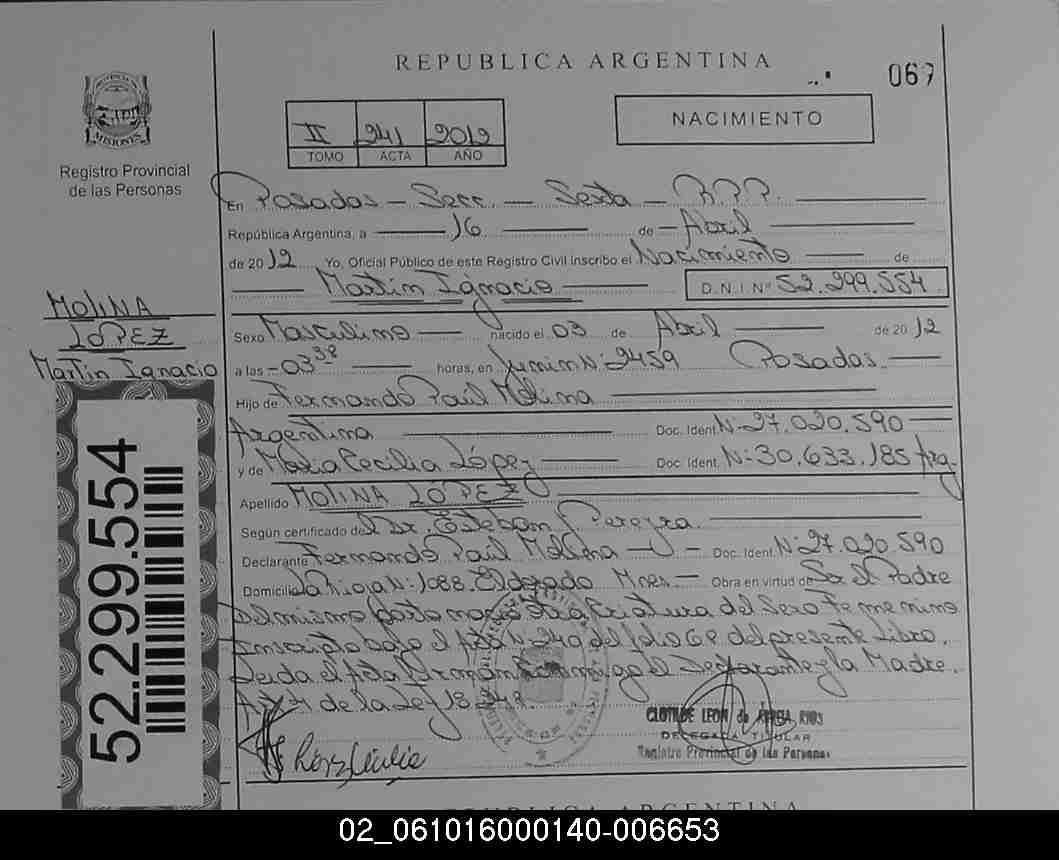 REPUBLICA ARGENTINA
067
PROVINCIA DE MISIONES
Registro Provincial
de las Personas
II 241 2012
TOMO ACTA AÑO
NACIMIENTO
En Posadas - Secc. - Sexta - R.P.P.
República Argentina, a 16 de - Abril
de 2012 Yo, Oficial Público de este Registro Civil inscribo el Nacimiento de
Martin Ignacio D.N.I. Nº 52.299.554
MOLINA
LOPEZ
Martin Ignacio
Sexo Masculino nacido el 03 de Abril de 2012
a las - 03 38 horas, en Junin Nº 2459 Posadas.
Hijo de Fernando Paul Molina
Argentina Doc. Ident. Nº 27.020.590
y de Maria Cecilia López Doc. Ident. Nº 30.633.185 Arg.
Apellido MOLINA LOPEZ
Según certificado del Dr. Esteban Pereyra.
Declarante Fernando Paul Molina - Doc. Ident. Nº 27.020.590
Domicilio La Rioja Nº 1088. Eldorado Mnes. - Obra en virtud de Ser el Padre
Del mismo parto nació otra Criatura del Sexo Femenino
Inscripta bajo el Acta Nº 240 del folio del presente Libro.
Leida el Acta Firman Conmigo el Declarante y la Madre.
de la Ley 18.248.
CLOTILDE LEON de RIOS
DELEGADA TITULAR
Registro Provincial de las Personas
López Cecilia
52.299.554
REPUBLICA ARGENTINA
02_061016000140-006653